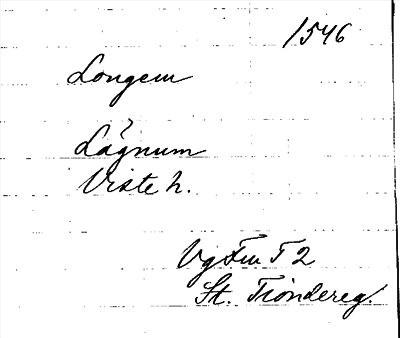 1546
Longem
Lágnum
Viste h.
Vg Fru T 2
St. Tiondereg.